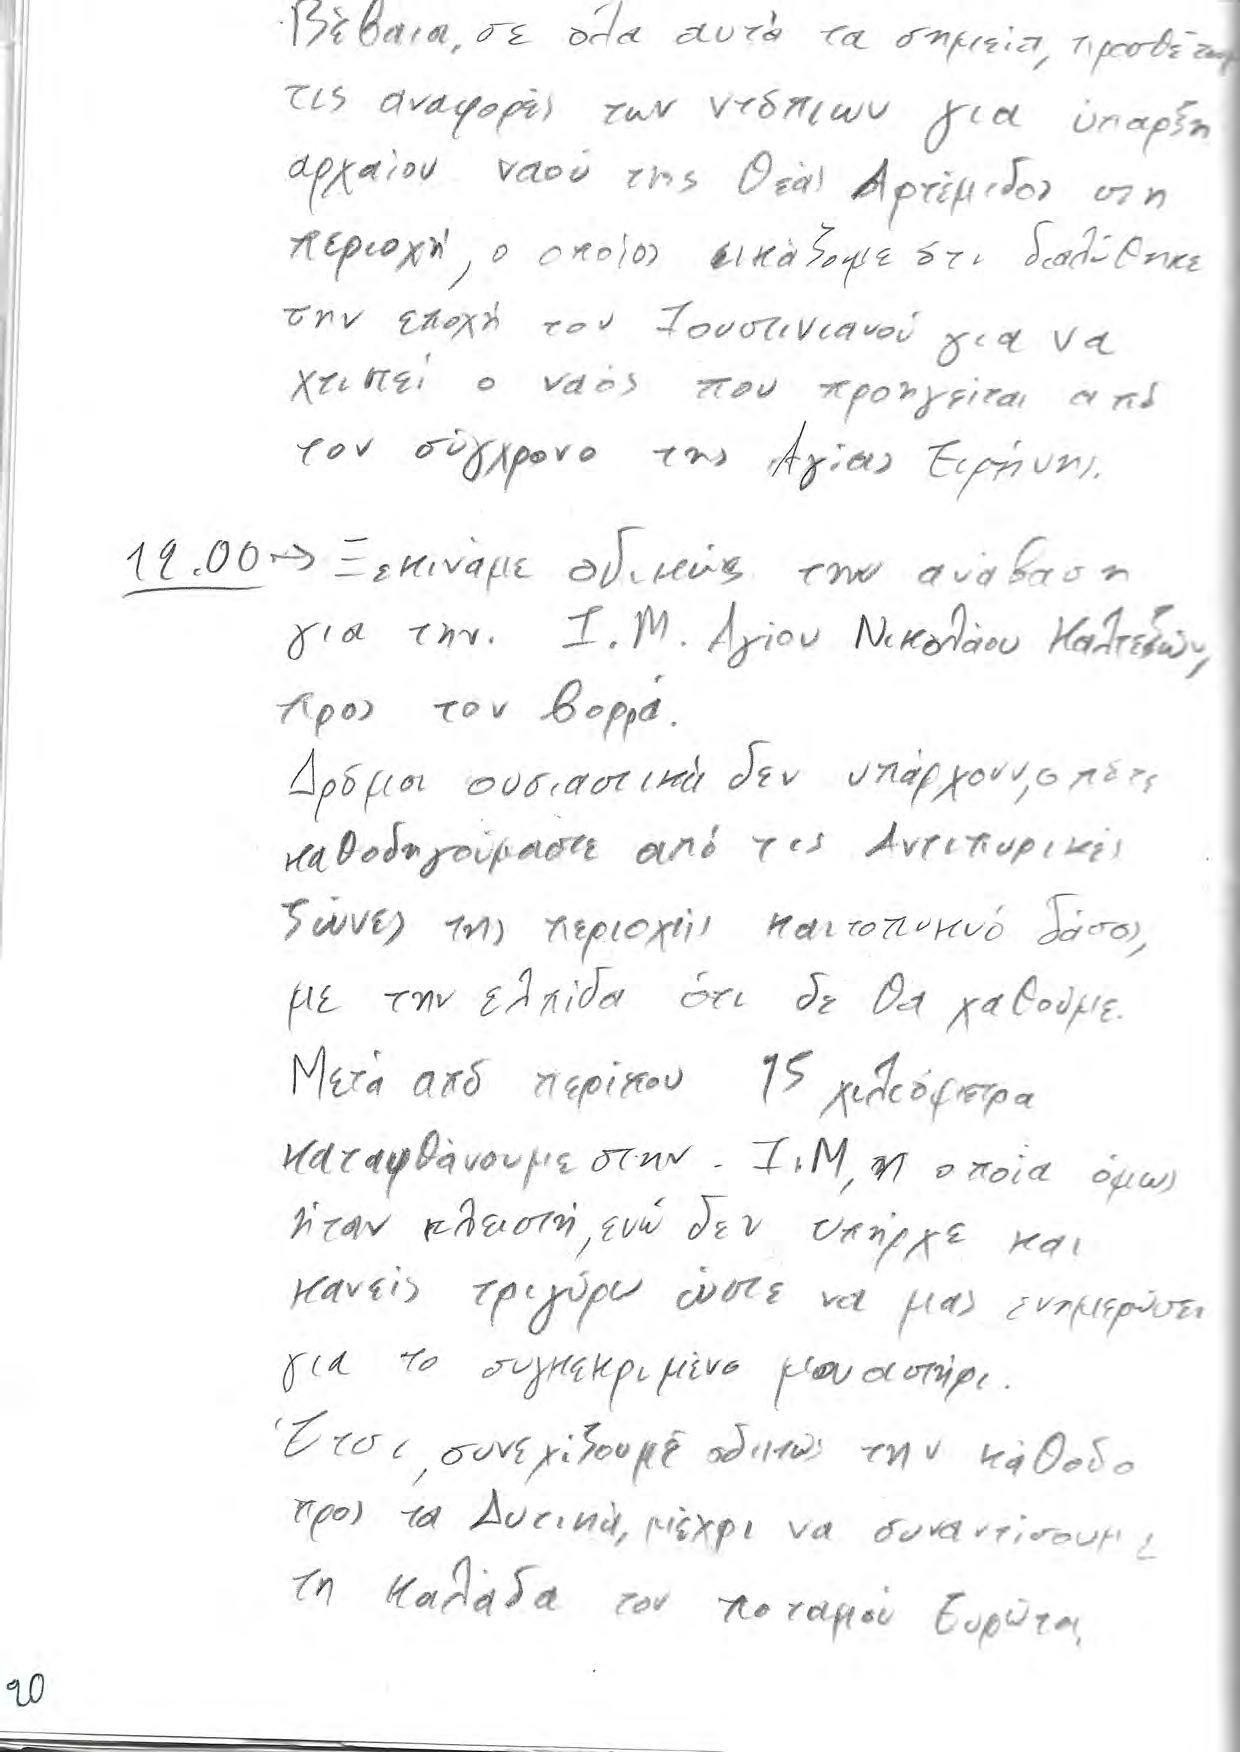 Βέβαια, σε όλα αυτά τα σημεία, προσθέτουμε
τις αναφορές των ντόπιων για ύπαρξη
αρχαίου ναού της Θεάς Αρτέμιδος στη
περιοχή, ο οποίος εικάζουμε ότι διαλύθηκε
την εποχή του Ιουστινιανού για να
χτιστεί ο ναός που προηγείται από
τον σύγχρονο της Αγίας Ειρήνης.
12.00 → Ξεκινάμε οδικώς την ανάβαση
για την. Ι.Μ. Αγίου Νικολάου Καλτεζών,
προς τον βορρά.
Δρόμοι ουσιαστικά δεν υπάρχουν, οπότε
καθοδηγούμαστε από τις Αντιπυρικές
ζώνες της περιοχής και το πυκνό δάσος,
με την ελπίδα ότι δε θα χαθούμε.
Μετά από περίπου 15 χιλιόμετρα
καταφθάνουμε στην. Ι.Μ, η οποία όμως
ήταν κλειστή, ενώ δεν υπήρχε και
κανείς τριγύρω ώστε να μας ενημερώσει
για το συγκεκριμένο μοναστήρι.
Έτσι, συνεχίζουμε οδικώς την κάθοδο
προς τα Δυτικά, μέχρι να συναντίσουμε
τη κοιλάδα του ποταμού Ευρώτα,
20